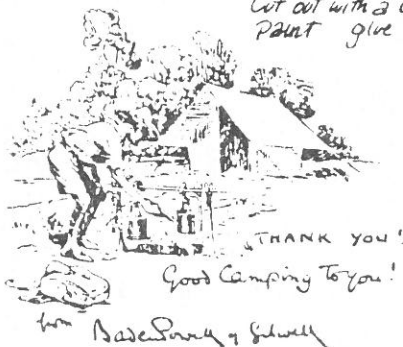 Cut out with a
Paint glue
THANK YOU!
Good Camping To you!
from Baden Powell of Gilwell